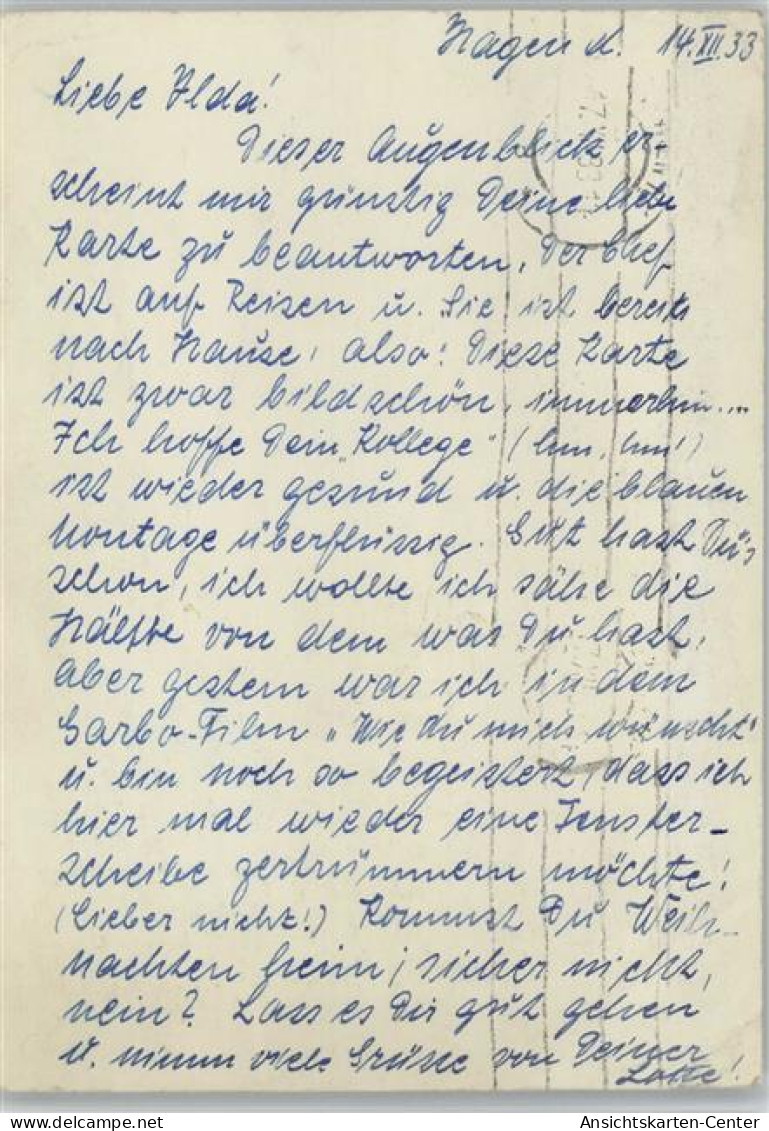 Hagen d. 14.XII.33
Liebe Ilda!
Dieser Augenblick er-
scheint mir günstig Deine liebe
Karte zu beantworten, der Chef
ist auf Reisen u. Sie ist bereits
nach Hause, also: Diese Karte
ist zwar bildschön, immerhin....
Ich hoffe Dein „Kollege" (hm, hm!)
ist wieder gesund u. die blauen
Montage überflüssig. Gut hast Du's
schon, ich wollte ich sähe die
Hälfte von dem was Du hast,
aber gestern war ich in dem
Garbo-Film „Wie Du mich wünscht"
u. bin noch so begeistert, dass ich
hier mal wieder eine Fenster-
scheibe zertrümmern möchte!
(Lieber nicht!) Kommst Du Weih-
nachten heim, sicher nicht,
nein? Lass es Dir gut gehen
u. nimm viele Grüsse von Deiner
Lotte!
Ansichtskarten-Center